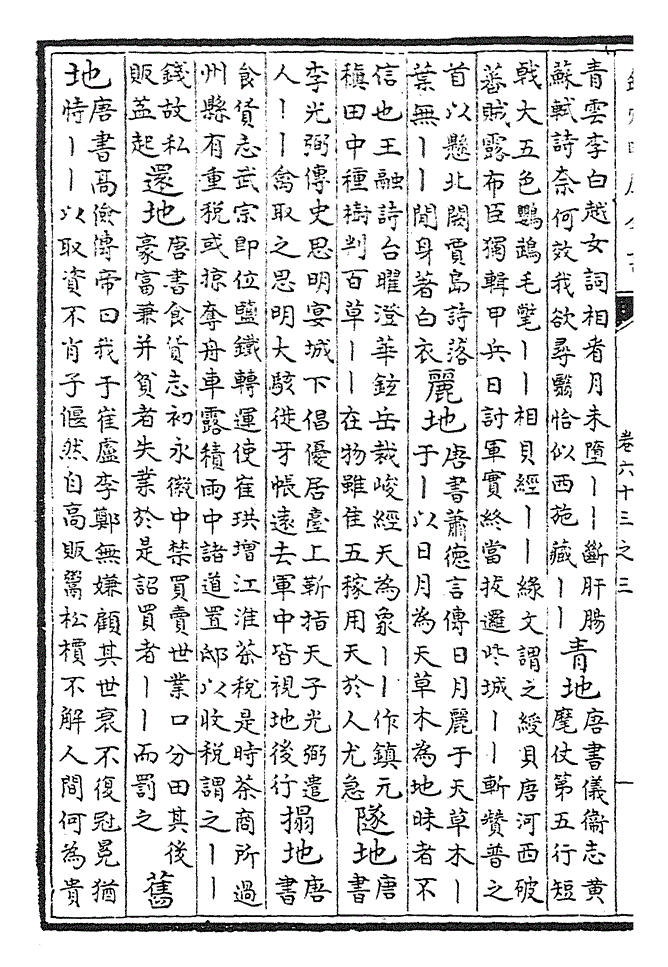 青雲李白越女詞相看月未墮丨丨斷肝腸
蘇軾詩奈何效我欲尋翳恰似西施藏丨丨
青地
唐書儀衛志黄
麾仗第五行短
戟大五色鸚鵡毛氅丨丨相貝經丨丨綠文謂之綬貝唐河西破
蕃賊露布臣獨輯甲兵日討軍實終當拔邏些城丨丨斬贊普之
首以懸北闕賈島詩落
葉無丨丨聞身著白衣
麗地
唐書蕭德言傳日月麗于天草木丨
于丨以日月為天草木為地昧者不
信也王融詩台曜澄華鉉岳裁峻經天為象丨丨作鎮元
稹田中種樹判百草丨丨在物雖隹五稼用天於人尤急
隧地
唐
書
李光弼傳史思明宴城下倡優居臺上靳指天子光弼遣
人丨丨禽取之思明大駭徙牙帳遠去軍中皆視地後行
搨地
唐
書
食貨志武宗即位鹽鐵轉運使崔珙增江淮茶稅是時茶商所過
州縣有重稅或掠奪舟車露積雨中諸道置邸以收稅謂之丨丨
錢故私
販益起
還地
唐書食貨志初永徽中禁買賣世業口分田其後
豪富兼并貧者失業於是詔買者丨丨而罰之
舊
地
唐書高儉傳帝曰我于崔盧李鄭無嫌顧其世衰不復冠冕猶
恃丨丨以取資不肖子偃然自高販鬻松檟不解人間何為貴
卷六十三之三